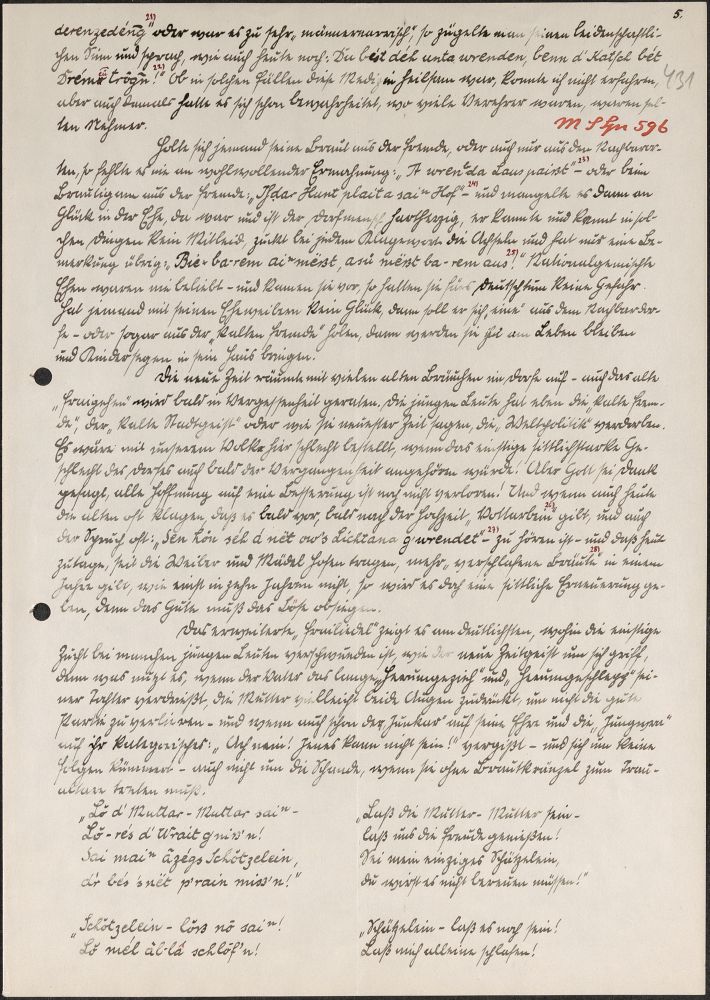 5.
431
derenzedéng" 21) oder war es zu sehr "männernarrisch", so zügelte man seinen leidenschaftli-
chen Sinn und sprach, wie auch heute noch: "Du bist dét unta wrenden, benn d'Katsel bét
Dreme trögn!" 22) Ob in solchen Fällen diese Medizin heilsam war, konnte ich nicht erfahren,
aber auch damals hatte es sich schon bewahrheitet, wo viele Verehrer waren, waren sel-
ten Nehmer.
M S Gn 596
Holte sich jemand seine Braut aus der Fremde, oder auch nur aus den Nachbaror-
ten, so fehlte es nie an wohlwollender Ermahnung: "A wren'da Laus paisst" 23) - oder beim
Bräutigam aus der Fremde: "Jedar Hunt plait a sain Hof" 24) - und mangelte es dann an
Glück in der Ehe, da war und ist der Dorfmensch hartherzig, er kannte und kennt in sol-
chen Dingen kein Mitleid, zuckt bei jedem Klagewort die Achseln und hat nur eine Be-
merkung übrig: "Bie-ba-rem ai nësst, asú nësst ba-rem aus!" 25) Nationalgemischte
Ehen waren nie beliebt - und kamen sie vor, so hatten sie fürs Deutschtum keine Gefahr.
Hat jemand mit seinen Eheweibern kein Glück, dann soll er sich "eine" aus dem Nachbardor-
fe - oder sogar aus der "kalten Fremde" holen, dann werden sie ihm am Leben bleiben
und Kindersegen in sein Haus bringen.
Die neue Zeit räumte mit vielen alten Bräuchen im Dorfe auf - auch das alte
"Fraigehen" wird bald in Vergessenheit geraten. Die jungen Leute hat eben die "kalte Frem-
de", der "kalte Stadtgeist" oder wie sie neuester Zeit sagen, die "Weltpolitik" verdorben.
Es wäre mit unserem Volke hier schlecht bestellt, wenn das einstige sittlichstarke Ge-
schlecht des Dorfes auch bald der Vergangenheit angehören würde! Aber Gott sei Dank
gesagt, alle Hoffnung auf eine Besserung ist noch nicht verloren! Und wenn auch heute
die alten oft klagen, daß es bald vor, bald nach der Hochzeit "Voltarbein" 26) gibt, und auch
der Spruch oft: "Den kön sél d nét ow's Lichtana g'wrendet" 27) - zu hören ist - und daß heut
zutage, seit die Weiber und Mädel Hosen tragen, mehr "verschlafene Bräute" 28) in einem
Jahre gibt, wie einst in zehn Jahren nicht, so wird es doch eine sittliche Erneuerung ge-
ben, denn das Gute muß das Böse obsiegen.
Das erweiterte "Frailiedel" zeigt es am deutlichsten, wohin die einstige
Zucht bei manchen jungen Leuten verschwunden ist, wie der neue Zeitgeist um sich greift,
denn was nützt es, wenn der Vater das lange "Herumgezieh" und "Herumgeschlepp" sei-
ner Tochter verdrießt, die Mutter vielleicht beide Augen zudrückt, um nicht die gute
Partie zu verlieren - und wenn auch schon der "Junkar" auf seine Ehre und die "Jungwra"
auf ihr kategorisches: "Ach nein! Jenes kann nicht sein!" vergißt - und sich um keine
Folgen kümmert - auch nicht um die Schande, wenn sie ohne Brautkränzel zum Trau-
altare treten muß.
"Lö d' Muttar - Muttar sain -
Lö - rés d' Wrait gnis'n!
Sai main äzégs Schötzelein,
dr bés 's nét p'rain miss'n!"
"Laß die Mutter - Mutter sein -
laß uns die Freude genießen!
Sei mein einziges Schätzelein,
du wirst es nicht bereuen müssen!"
"Schötzelein - löss nö sain!
Lö mél äl-lá schlöf'n!
"Schätzelein - laß es noch sein!
Laß mich alleine schlafen!